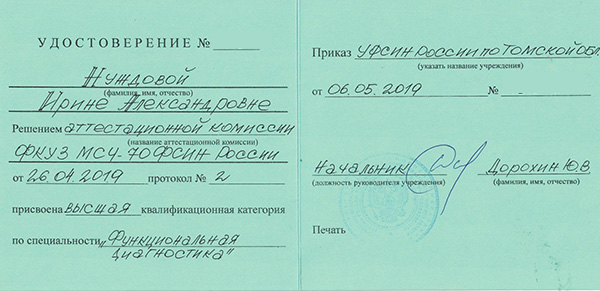 УДОСТОВЕРЕНИЕ №
Нуждовой
(фамилия, имя, отчество)
Ирине Александровне
Решением аттестационной комиссии
(название аттестационной комиссии)
ФКУЗ МСЧ-70 ФСИН России
от 26.04.2019 протокол № 2
присвоена высшая квалификационная категория
по специальности "Функциональная
диагностика"
Приказ УФСИН России по Томской обл
(указать название учреждения)
от 06.05.2019 № -
Начальник Дорохин Ю.В
(должность руководителя учреждения) (фамилия, имя, отчество)
Печать